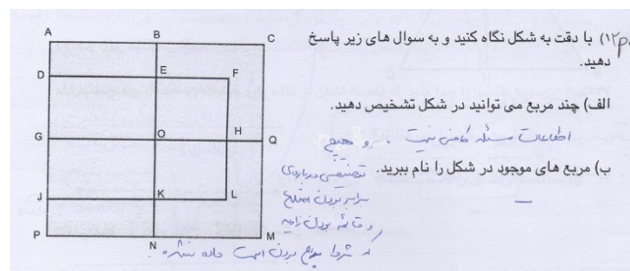 A B C
۱۲) با دقت به شکل نگاه کنید و به سوال های زیر پاسخ
دهید.
D E F
الف) چند مربع می توانید در شکل تشخیص دهید.
G O H Q
اطلاعات مسئله کافی نیست . و هیچ
ب) مربع های موجود در شکل را نام ببرید.
تضمینی درباره‌ی
برابر بودن اضلاع
J K L
و قائمه بودن زاویه
P N M
که شرط مربع بودن است داده نشده.